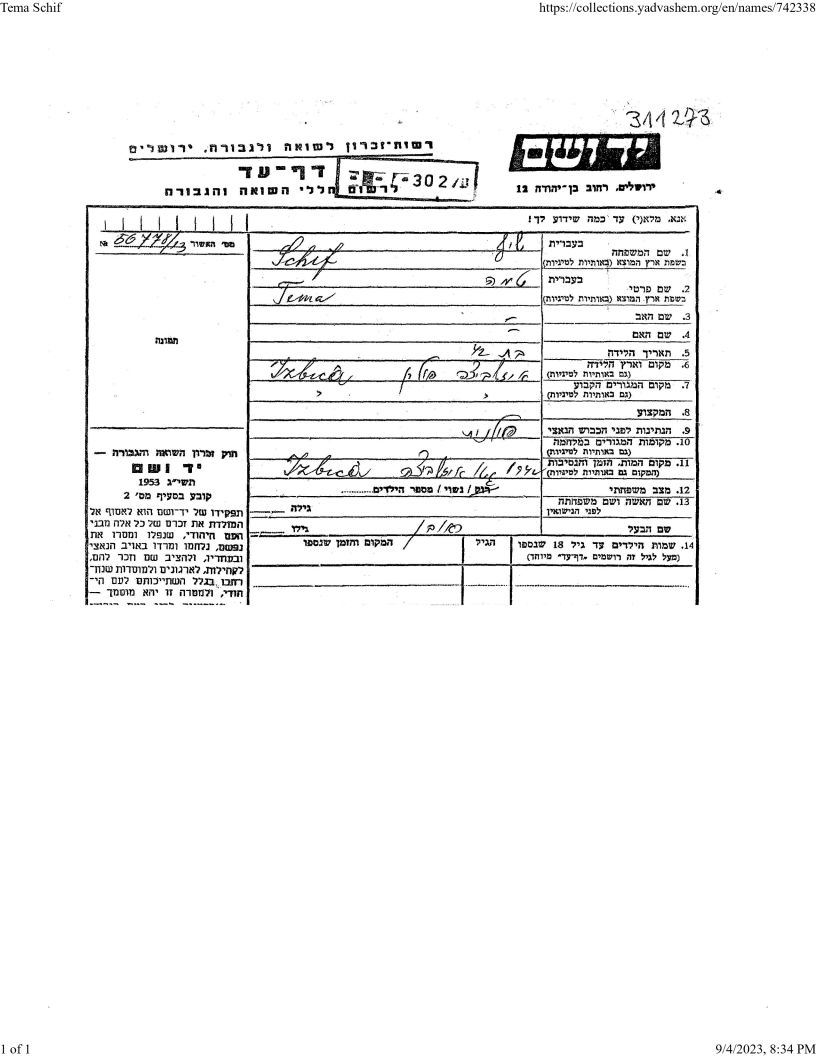 Tema Schif
https://collections.yadvashem.org/en/names/742338
311273
רשות־זכרון לשואה ולגבורה, ירושלים
ידושם
דף־עד
302/ע
לרשום חללי השואה והגבורה
ירושלים, רחוב בן־יהודה 12
אנא, מלא(י) עד כמה שידוע לך!
מס׳ האשור 56778/13 №
תמונה
1. שם המשפחה
בעברית
שיף
בשפת ארץ המוצא (באותיות לטיניות)
Schif
2. שם פרטי
בעברית
טמה
בשפת ארץ המוצא (באותיות לטיניות)
Tema
3. שם האב
4. שם האם
5. תאריך הלידה
בת 42
6. מקום וארץ הלידה
(גם באותיות לטיניות)
איזביצה פולין Izbica
7. מקום המגורים הקבוע
(גם באותיות לטיניות)
8. המקצוע
9. הנתינות לפני הכבוש הנאצי
פולנית
10. מקומות המגורים במלחמה
(גם באותיות לטיניות)
11. מקום המות, הזמן והנסיבות
(המקום גם באותיות לטיניות)
איזביצה Izbica
12. מצב משפחתי
רוק / נשוי / מספר הילדים
13. שם האשה ושם משפחתה
לפני הנישואין
גילה
שם הבעל
ראובן
גילו
14. שמות הילדים עד גיל 18 שנספו
(מעל לגיל זה רושמים „דף־עד״ מיוחד)
הגיל
המקום והזמן שנספו
חוק זכרון השואה והגבורה —
יד ושם
תשי״ג 1953
קובע בסעיף מס׳ 2
תפקידו של יד־ושם הוא לאסוף אל
המולדת את זכרם של כל אלה מבני
העם היהודי, שנפלו ומסרו את
נפשם, נלחמו ומרדו באויב הנאצי
ובעוזריו, ולהציב שם וזכר להם,
לקהילות, לארגונים ולמוסדות שנח־
רבו בגלל השתייכותם לעם הי־
הודי, ולמטרה זו יהא מוסמך —
1 of 1
9/4/2023, 8:34 PM